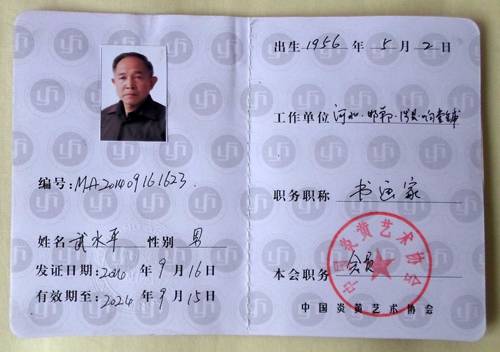 编号: MA201409161623.
姓名 武水平 性别 男
发证日期: 2014 年 9 月 16 日
有效期至: 2024 年 9 月 15 日
出生 1956 年 5 月 2 日
工作单位 河北·邯郸
职务职称 书画家
本会职务 会员
中国炎黄艺术协会
中国炎黄艺术协会